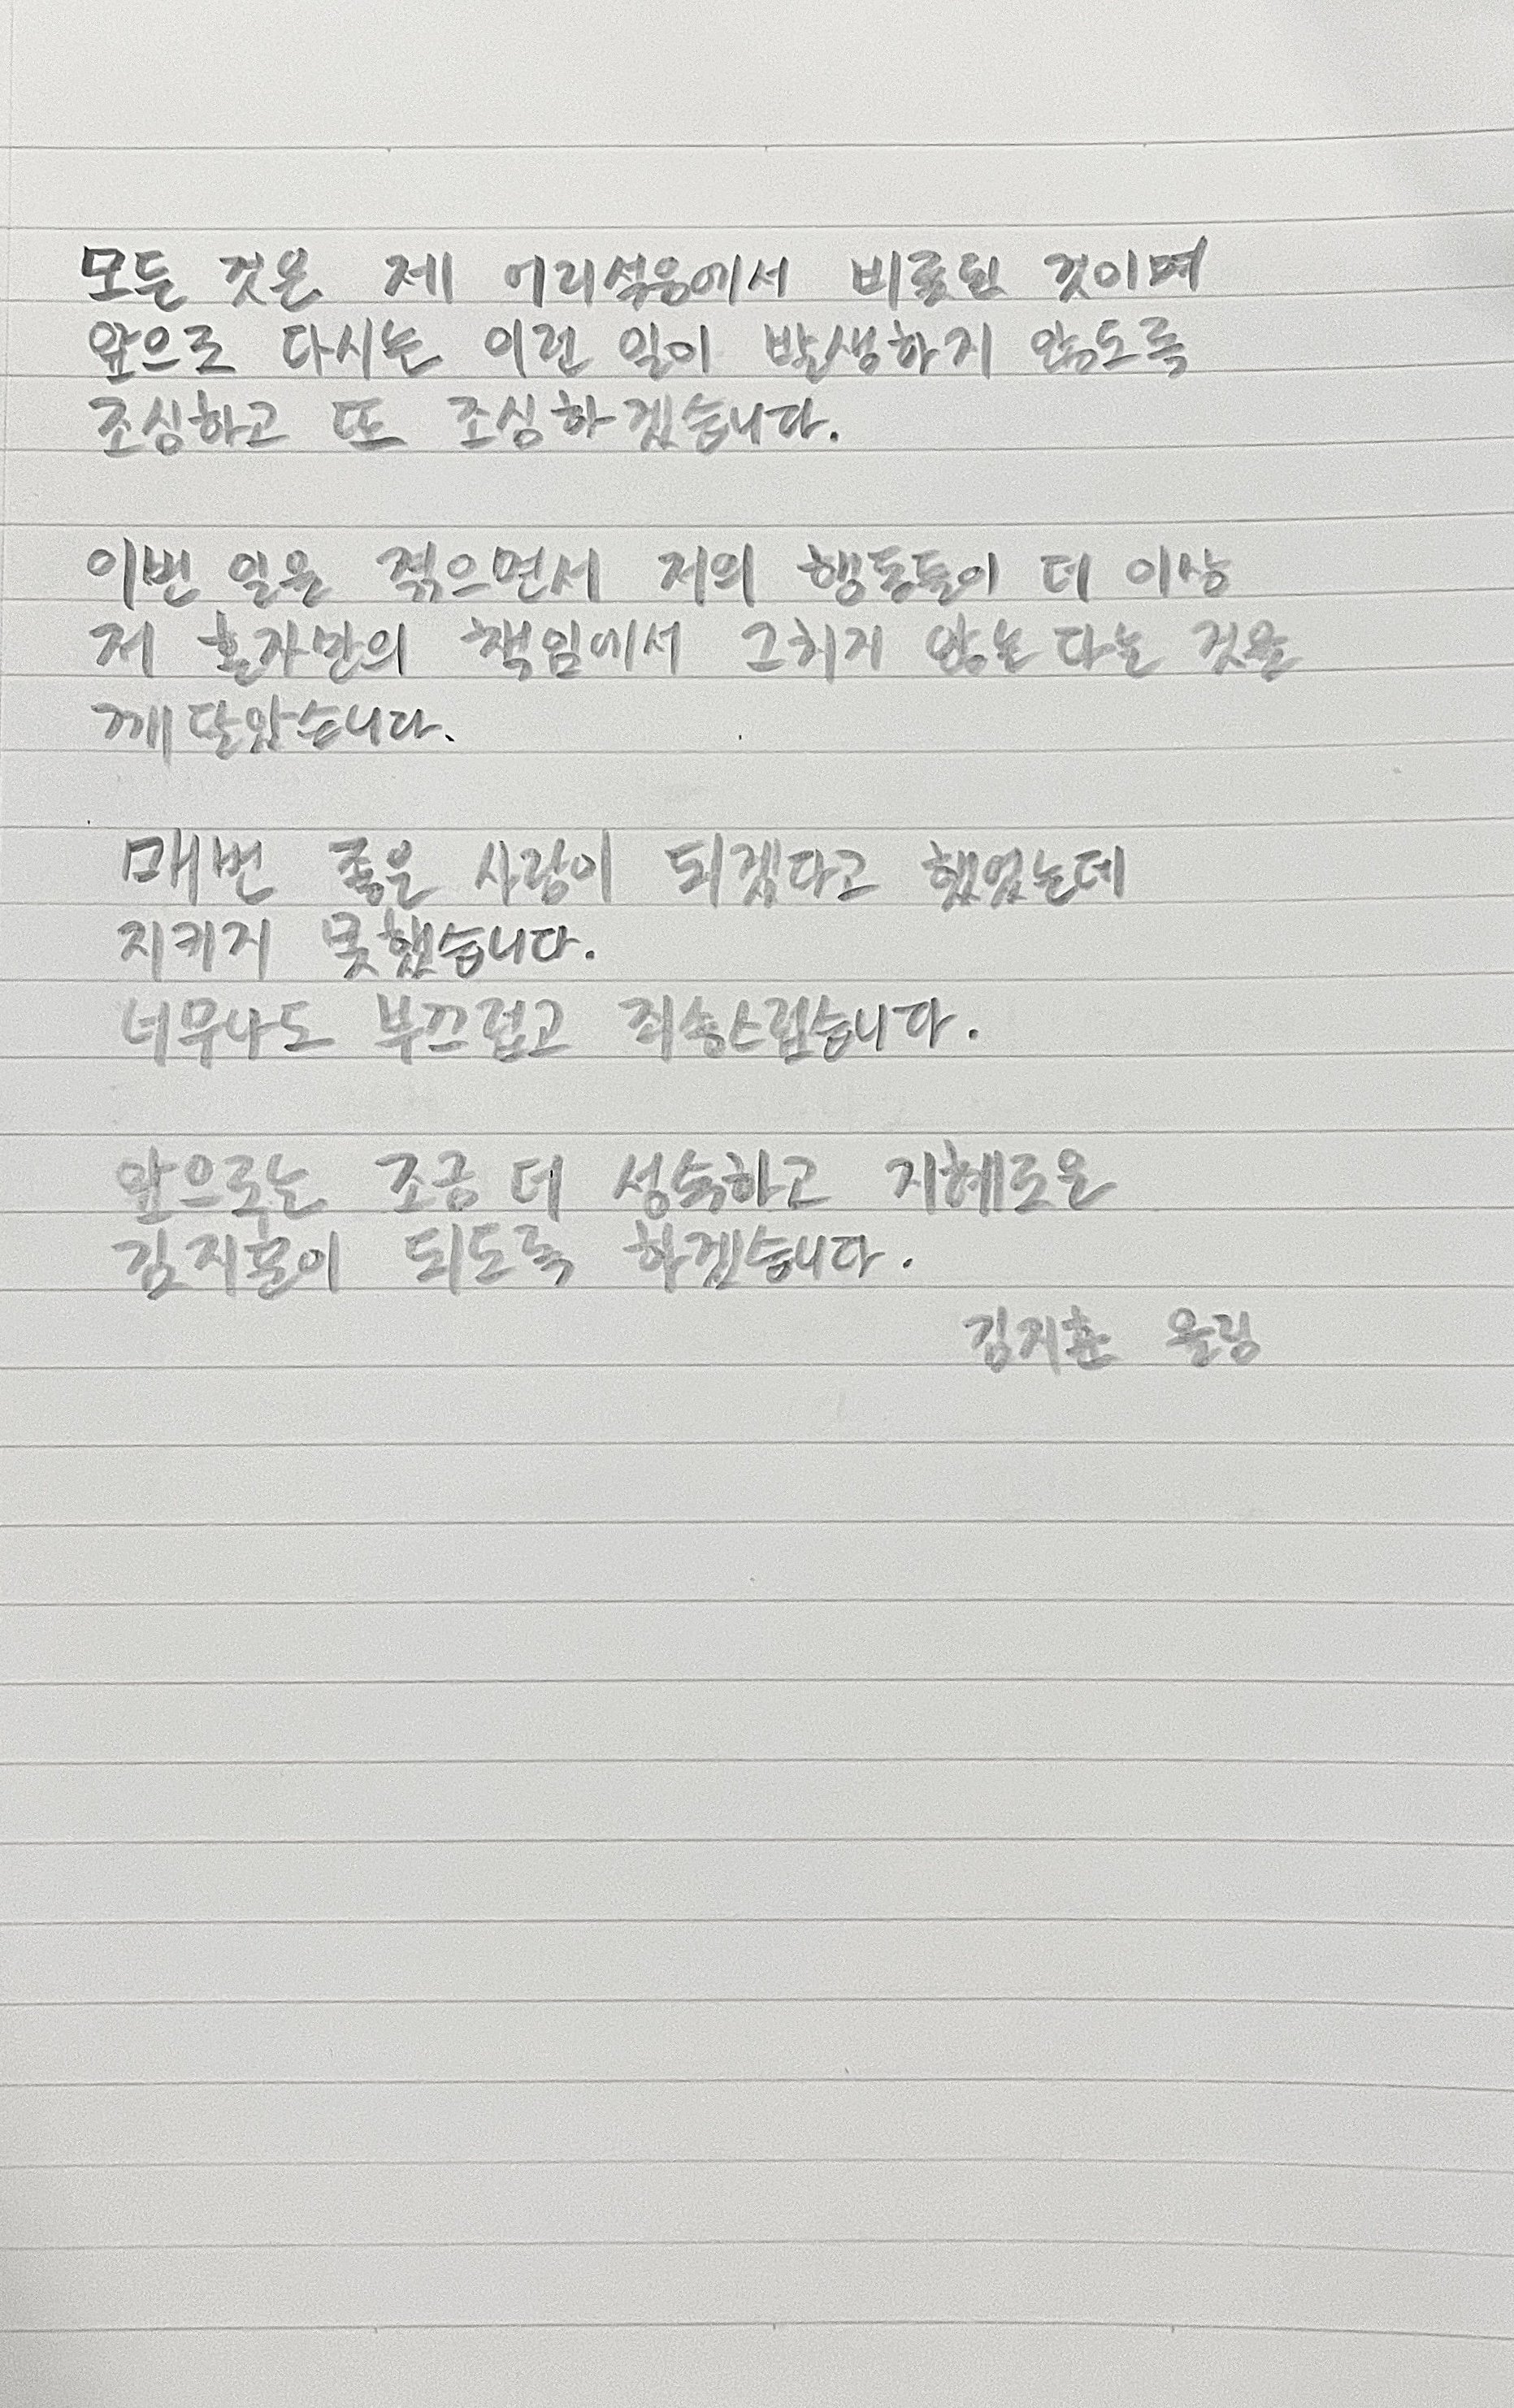 모든 것은 제 어리석음에서 비롯된 것이며
앞으로 다시는 이런 일이 발생하지 않도록
조심하고 또 조심하겠습니다.
이번 일을 겪으면서 저의 행동들이 더 이상
저 혼자만의 책임에서 그치지 않는 다는 것을
깨달았습니다.
매번 좋은 사람이 되겠다고 했었는데
지키지 못했습니다.
너무나도 부끄럽고 죄송스럽습니다.
앞으로는 조금 더 성숙하고 지혜로운
김지훈이 되도록 하겠습니다.
김지훈 올림